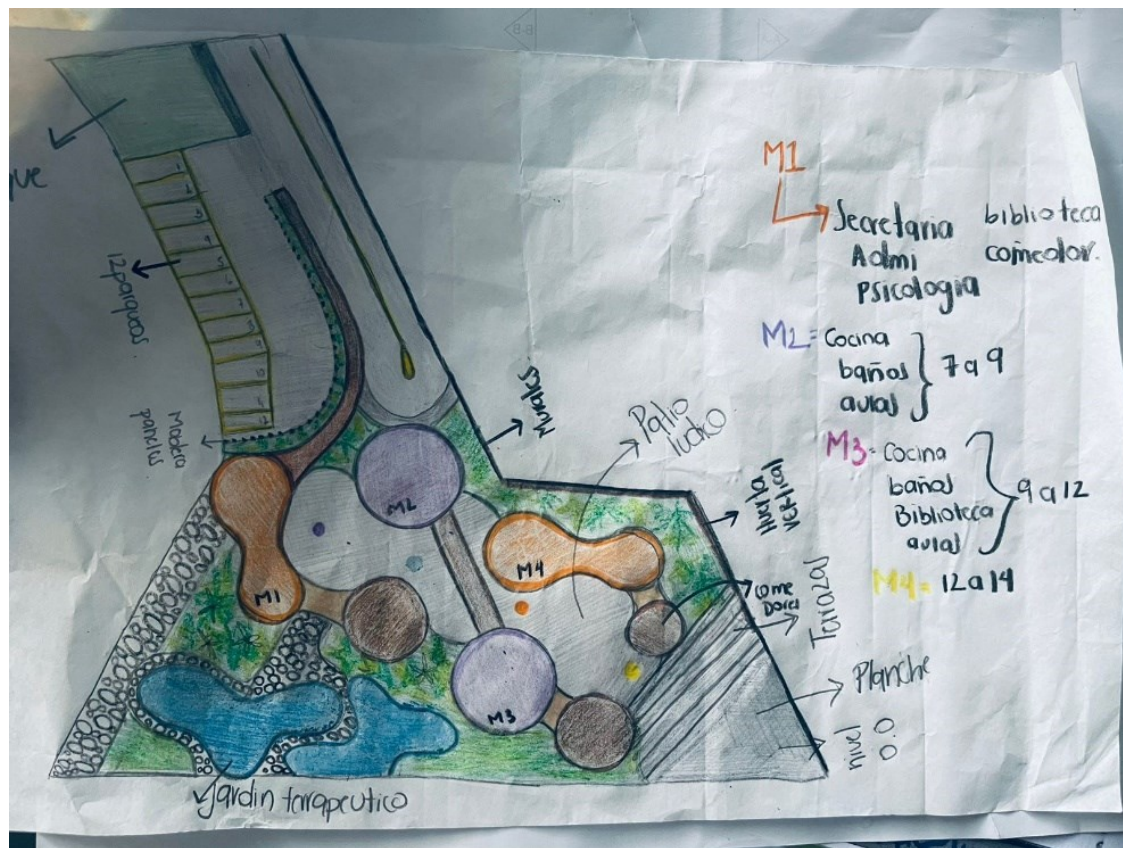 B-B
ue
12 parqueos.
Madera
panelas
Murales.
Patio
ludico
Huerta
vertical
come
Dores
Terrazas
Planche
nivel
0.0
Jardin terrapeutico
M1
M2
M3
M4
M1
Secretaria biblioteca
Admi comedor.
Psicologia
M2= Cocina
baños
aulas
7 a 9
M3= Cocina
baños
Biblioteca
aulas
9 a 12
M4= 12 a 14